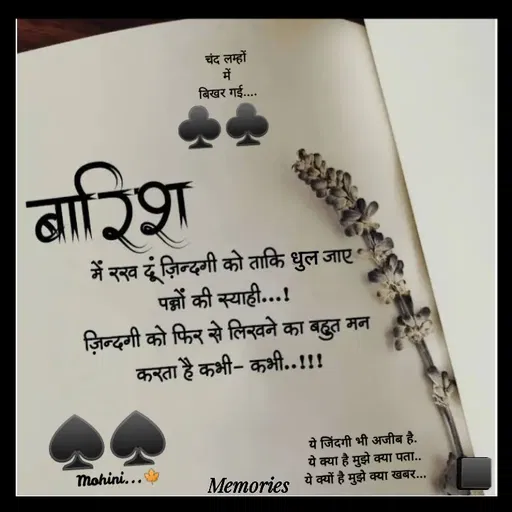 चंद लम्हों
में
बिखर गई....
बारिश
में रख दूं ज़िन्दगी को ताकि धुल जाए
पन्नों की स्याही...!
ज़िन्दगी को फिर से लिखने का बहुत मन
करता है कभी- कभी..!!!
ये जिंदगी भी अजीब है.
ये क्या है मुझे क्या पता..
ये क्यों है मुझे क्या खबर...
Mohini...🍁
Memories